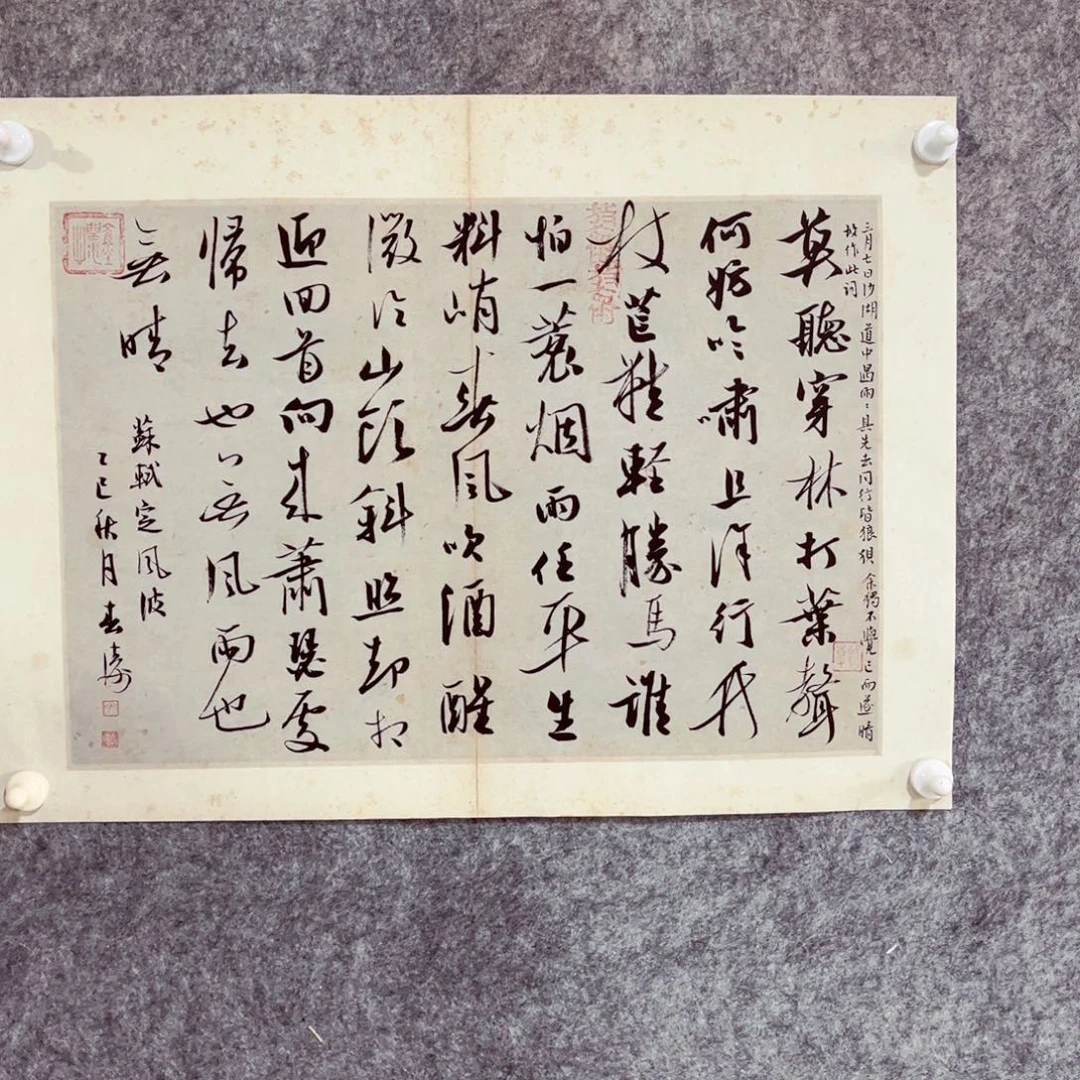 三月七日沙湖道中遇雨〻具先去同行皆狼狽余獨不覺已而遂晴
故作此詞
莫聽穿林打葉聲
何妨吟嘯且徐行竹
杖芒鞋輕勝馬誰
怕一蓑烟雨任平生
料峭春風吹酒醒
微冷山頭斜照却相
迎回首向来蕭瑟處
歸去也無風雨也
無晴
蘇軾定風波
乙巳秋月春濤